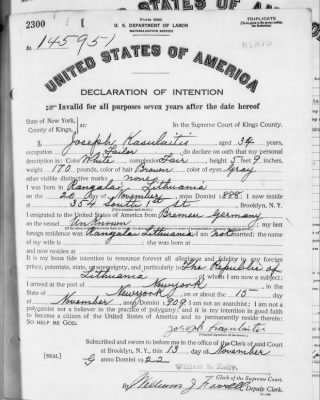 UNITED STATES OF AMERICA
2300
Form 2202
U. S. DEPARTMENT OF LABOR
NATURALIZATION SERVICE
TRIPLICATE
No. 145951
UNITED STATES OF AMERICA
DECLARATION OF INTENTION
Invalid for all purposes seven years after the date hereof
State of New York,
County of Kings,
ss:
In the Supreme Court of Kings County.
I, Joseph Kasulaitis, aged 34 years,
occupation Tailor, do declare on oath that my personal
description is: Color White, complexion Fair, height 5 feet 9 inches,
weight 170 pounds, color of hair Brown, color of eyes Gray
other visible distinctive marks none
I was born in Kangalai Lithuania
on the 20 day of November, anno Domini 1888; I now reside
at 354 South 1st St, Brooklyn, N. Y.
I emigrated to the United States of America from Bremen Germany
on the vessel Unknown; my last
foreign residence was Kangalai Lithuania; I am not married; the name
of my wife is; she was born at
and now resides at
It is my bona fide intention to renounce forever all allegiance and fidelity to any foreign
prince, potentate, state, or sovereignty, and particularly to The Republic of
Lithuania, of whom I am now a subject;
I arrived at the port of New York, in the
State of New York, on or about the 15 day
of November, anno Domini 1909; I am not an anarchist; I am not a
polygamist nor a believer in the practice of polygamy; and it is my intention in good faith
to become a citizen of the United States of America and to permanently reside therein:
SO HELP ME GOD.
Subscribed and sworn to before me in the office of the Clerk of said Court
at Brooklyn, N. Y., this 13 day of November
[SEAL]
anno Domini 1922
William E. Kelly.
Clerk of the Supreme Court.
By
Deputy Clerk.